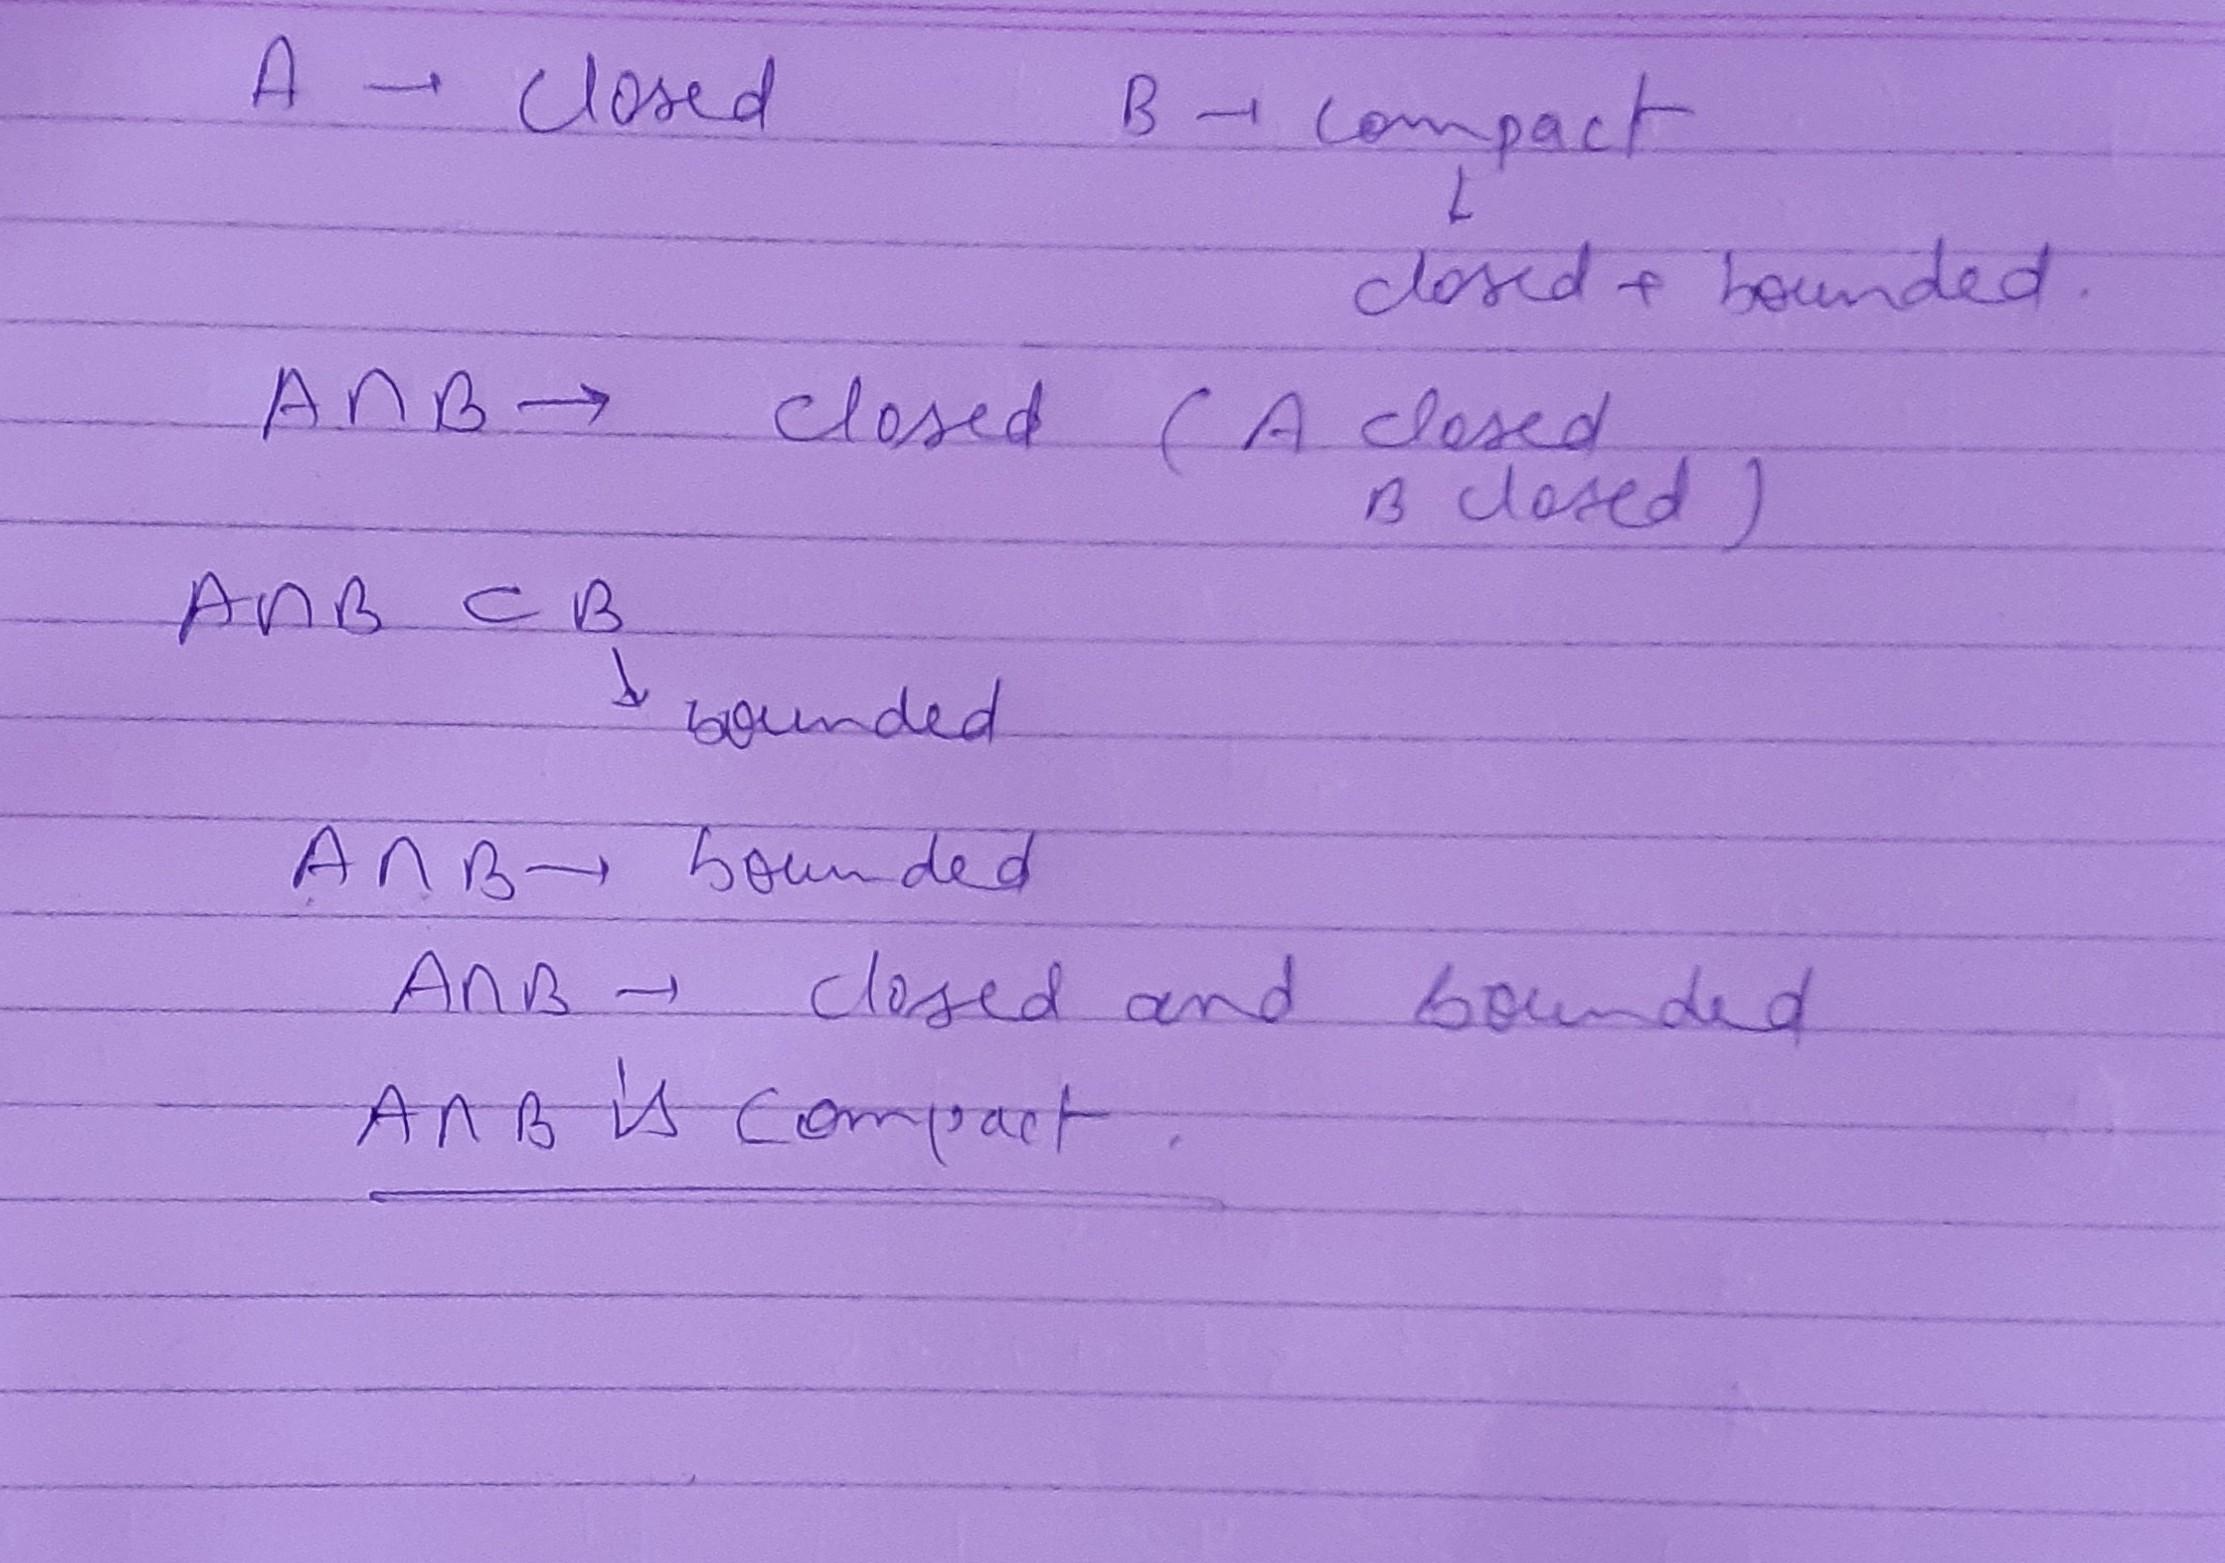 A → Closed B → compact
↓
closed + bounded.
A∩B → closed (A closed
B closed)
A∩B ⊂ B
↓ bounded
A∩B → bounded
A∩B → closed and bounded
A∩B is compact.